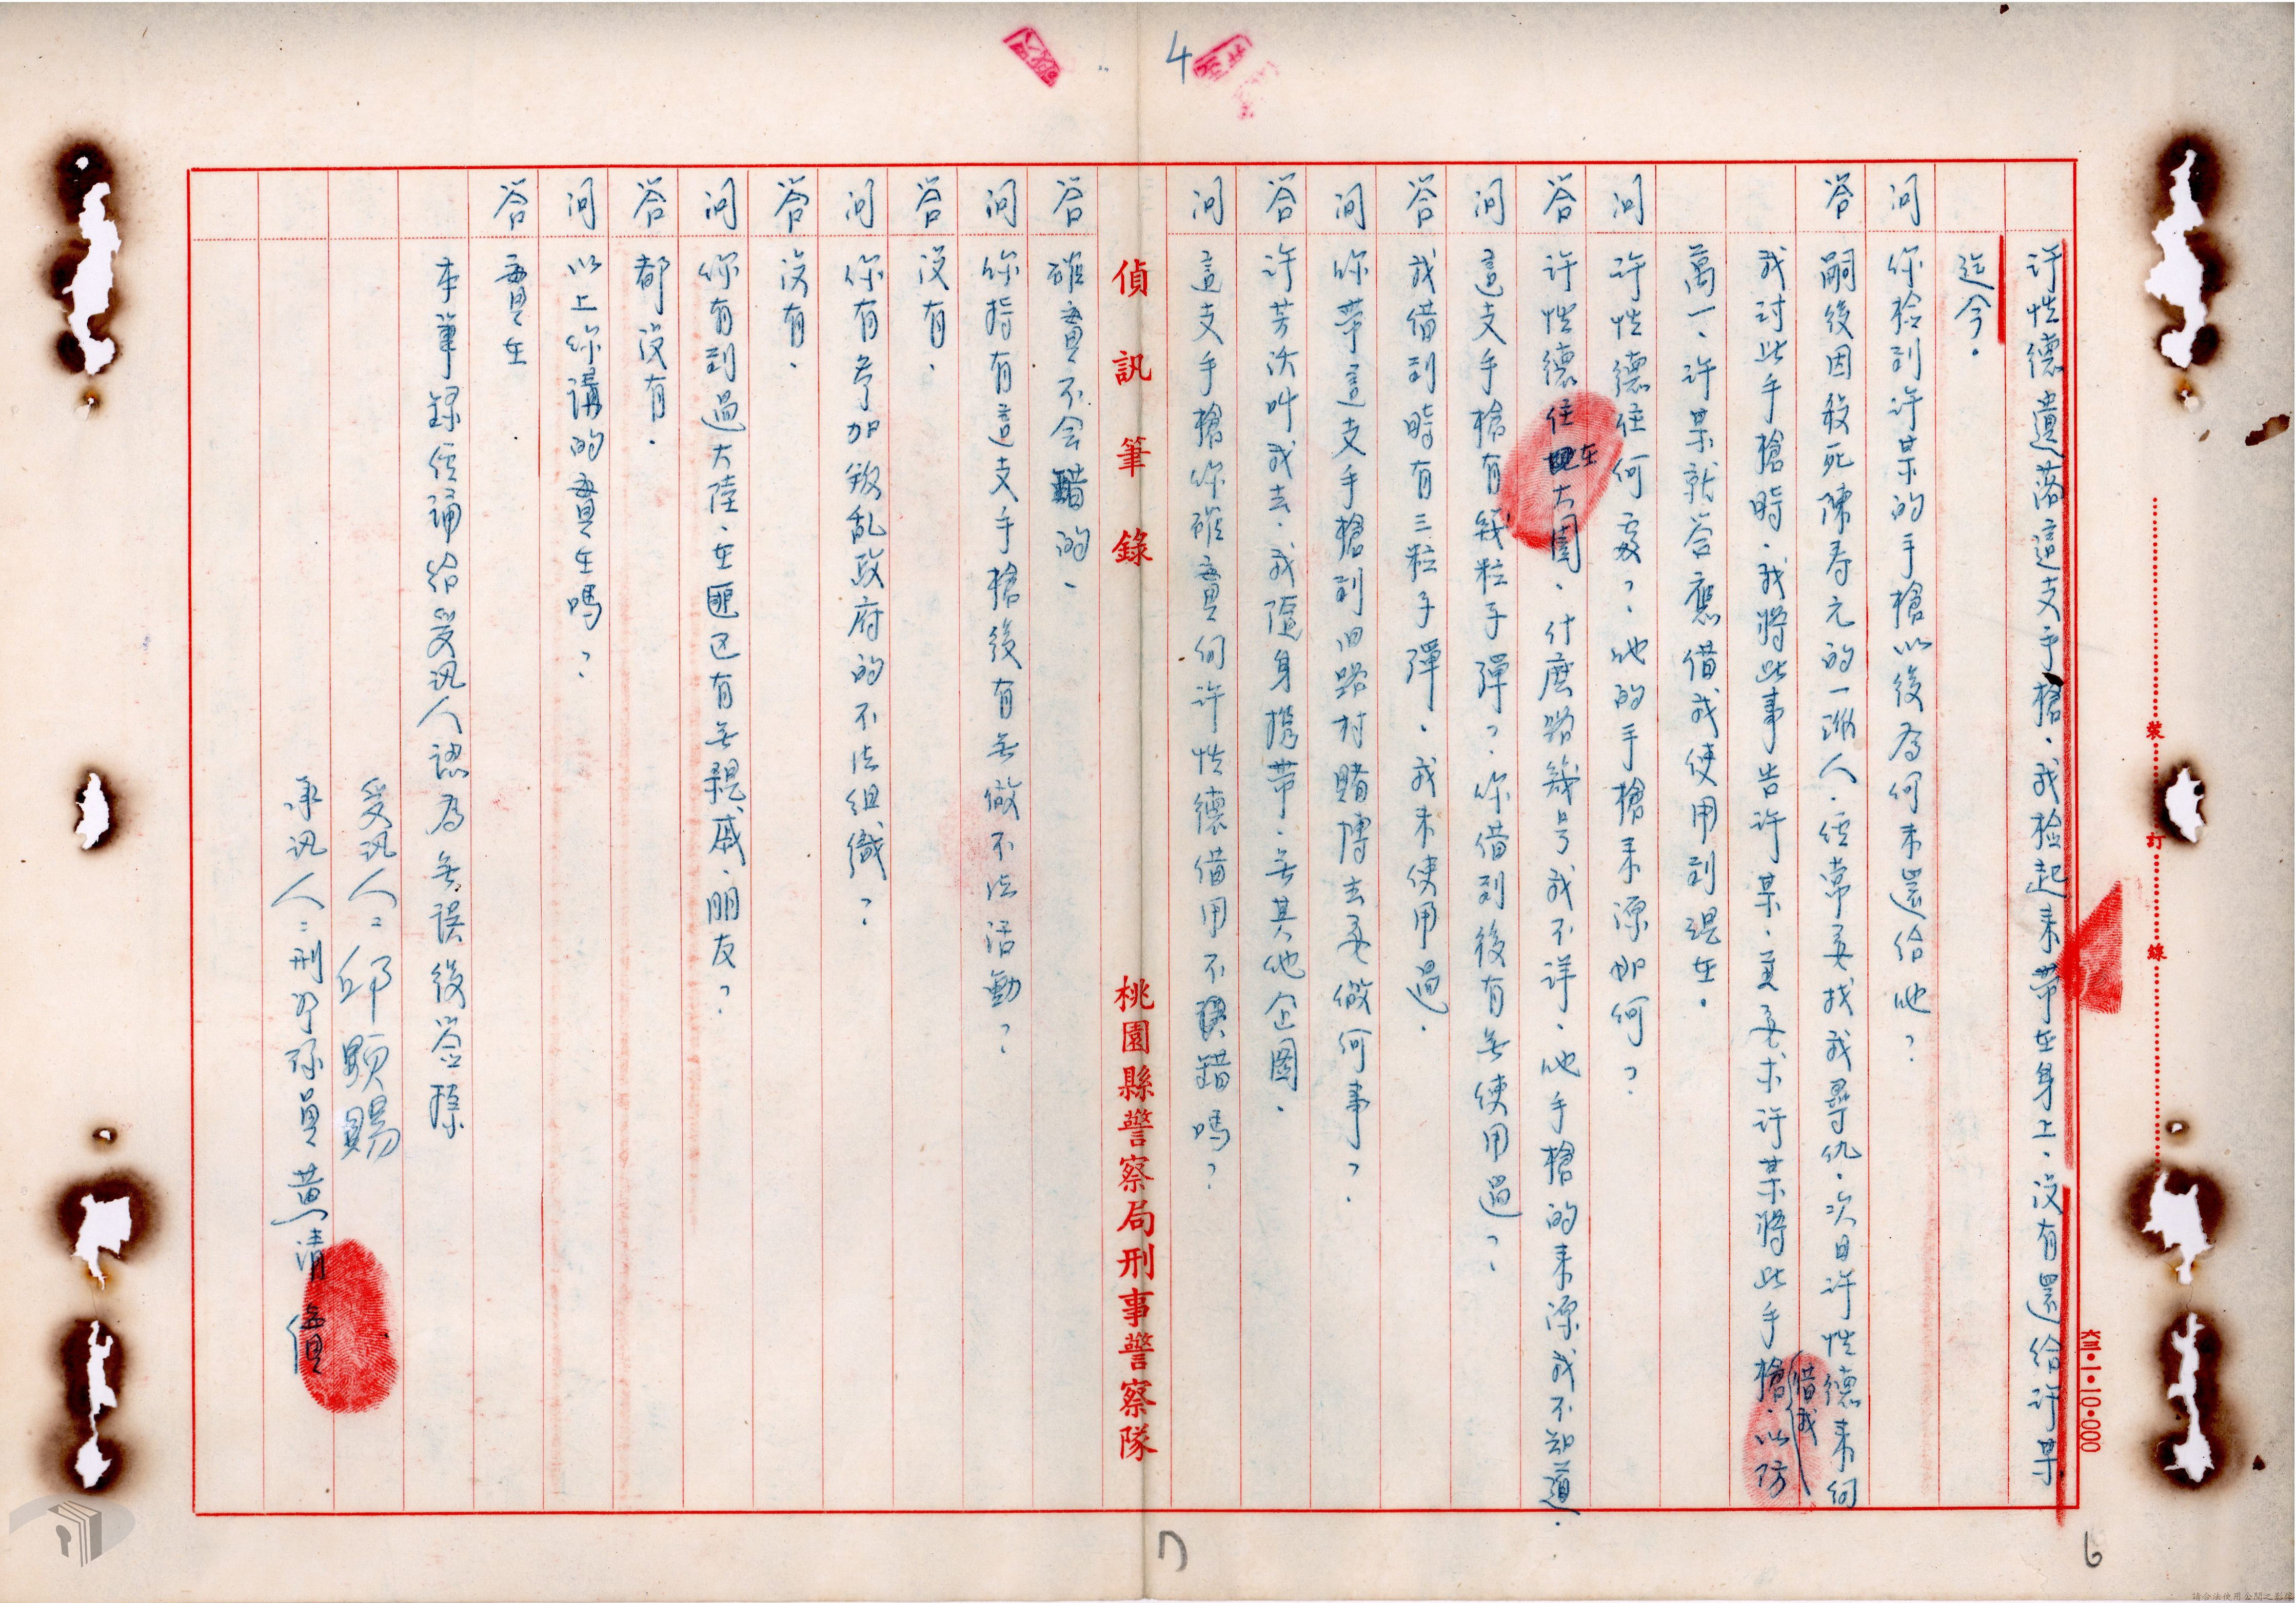 4
許性德遺落這支手槍．我檢起來帶在身上．沒有還給許某
迄今．
問 你檢到許某的手槍以後為何未還給他？
答 嗣後因殺死陳寿元的一派人．經常要找我尋仇．次日許性德來向
我討此手槍時．我將此事告許某．並要求許某將此手槍借我．以防
萬一、許某就答應借我使用到現在．
問 許性德住何處？．他的手槍來源如何？
答 許性德住在大園．什麼路幾号我不詳．他手槍的來源我不知道．
問 這支手槍有幾粒子彈？．你借到後有無使用過？．
答 我借到時有三粒子彈．我未使用過．
問 你帶這支手槍到旧路村賭博去要做何事？．
答 許芳沃叫我去．我隨身携帶．無其他企圖．
問 這支手槍你確實向許性德借用不錯嗎？
偵訊筆錄 桃園縣警察局刑事警察隊
答 確實不会錯的．
問 你持有這支手槍後有無做不法活動？．
答 沒有．
問 你有參加叛乱政府的不法組織？．
答 沒有．
問 你有到過大陸．在匪区有無親戚．朋友？．
答 都沒有．
問 以上你講的實在嗎？
答 實在
本筆錄經誦給受訊人認為無誤後簽捺
受訊人：邱顯賜
承訊人：刑警隊員黃清
裝 訂 線
六三•1•10•000
7
6
請合法使用公開之影像